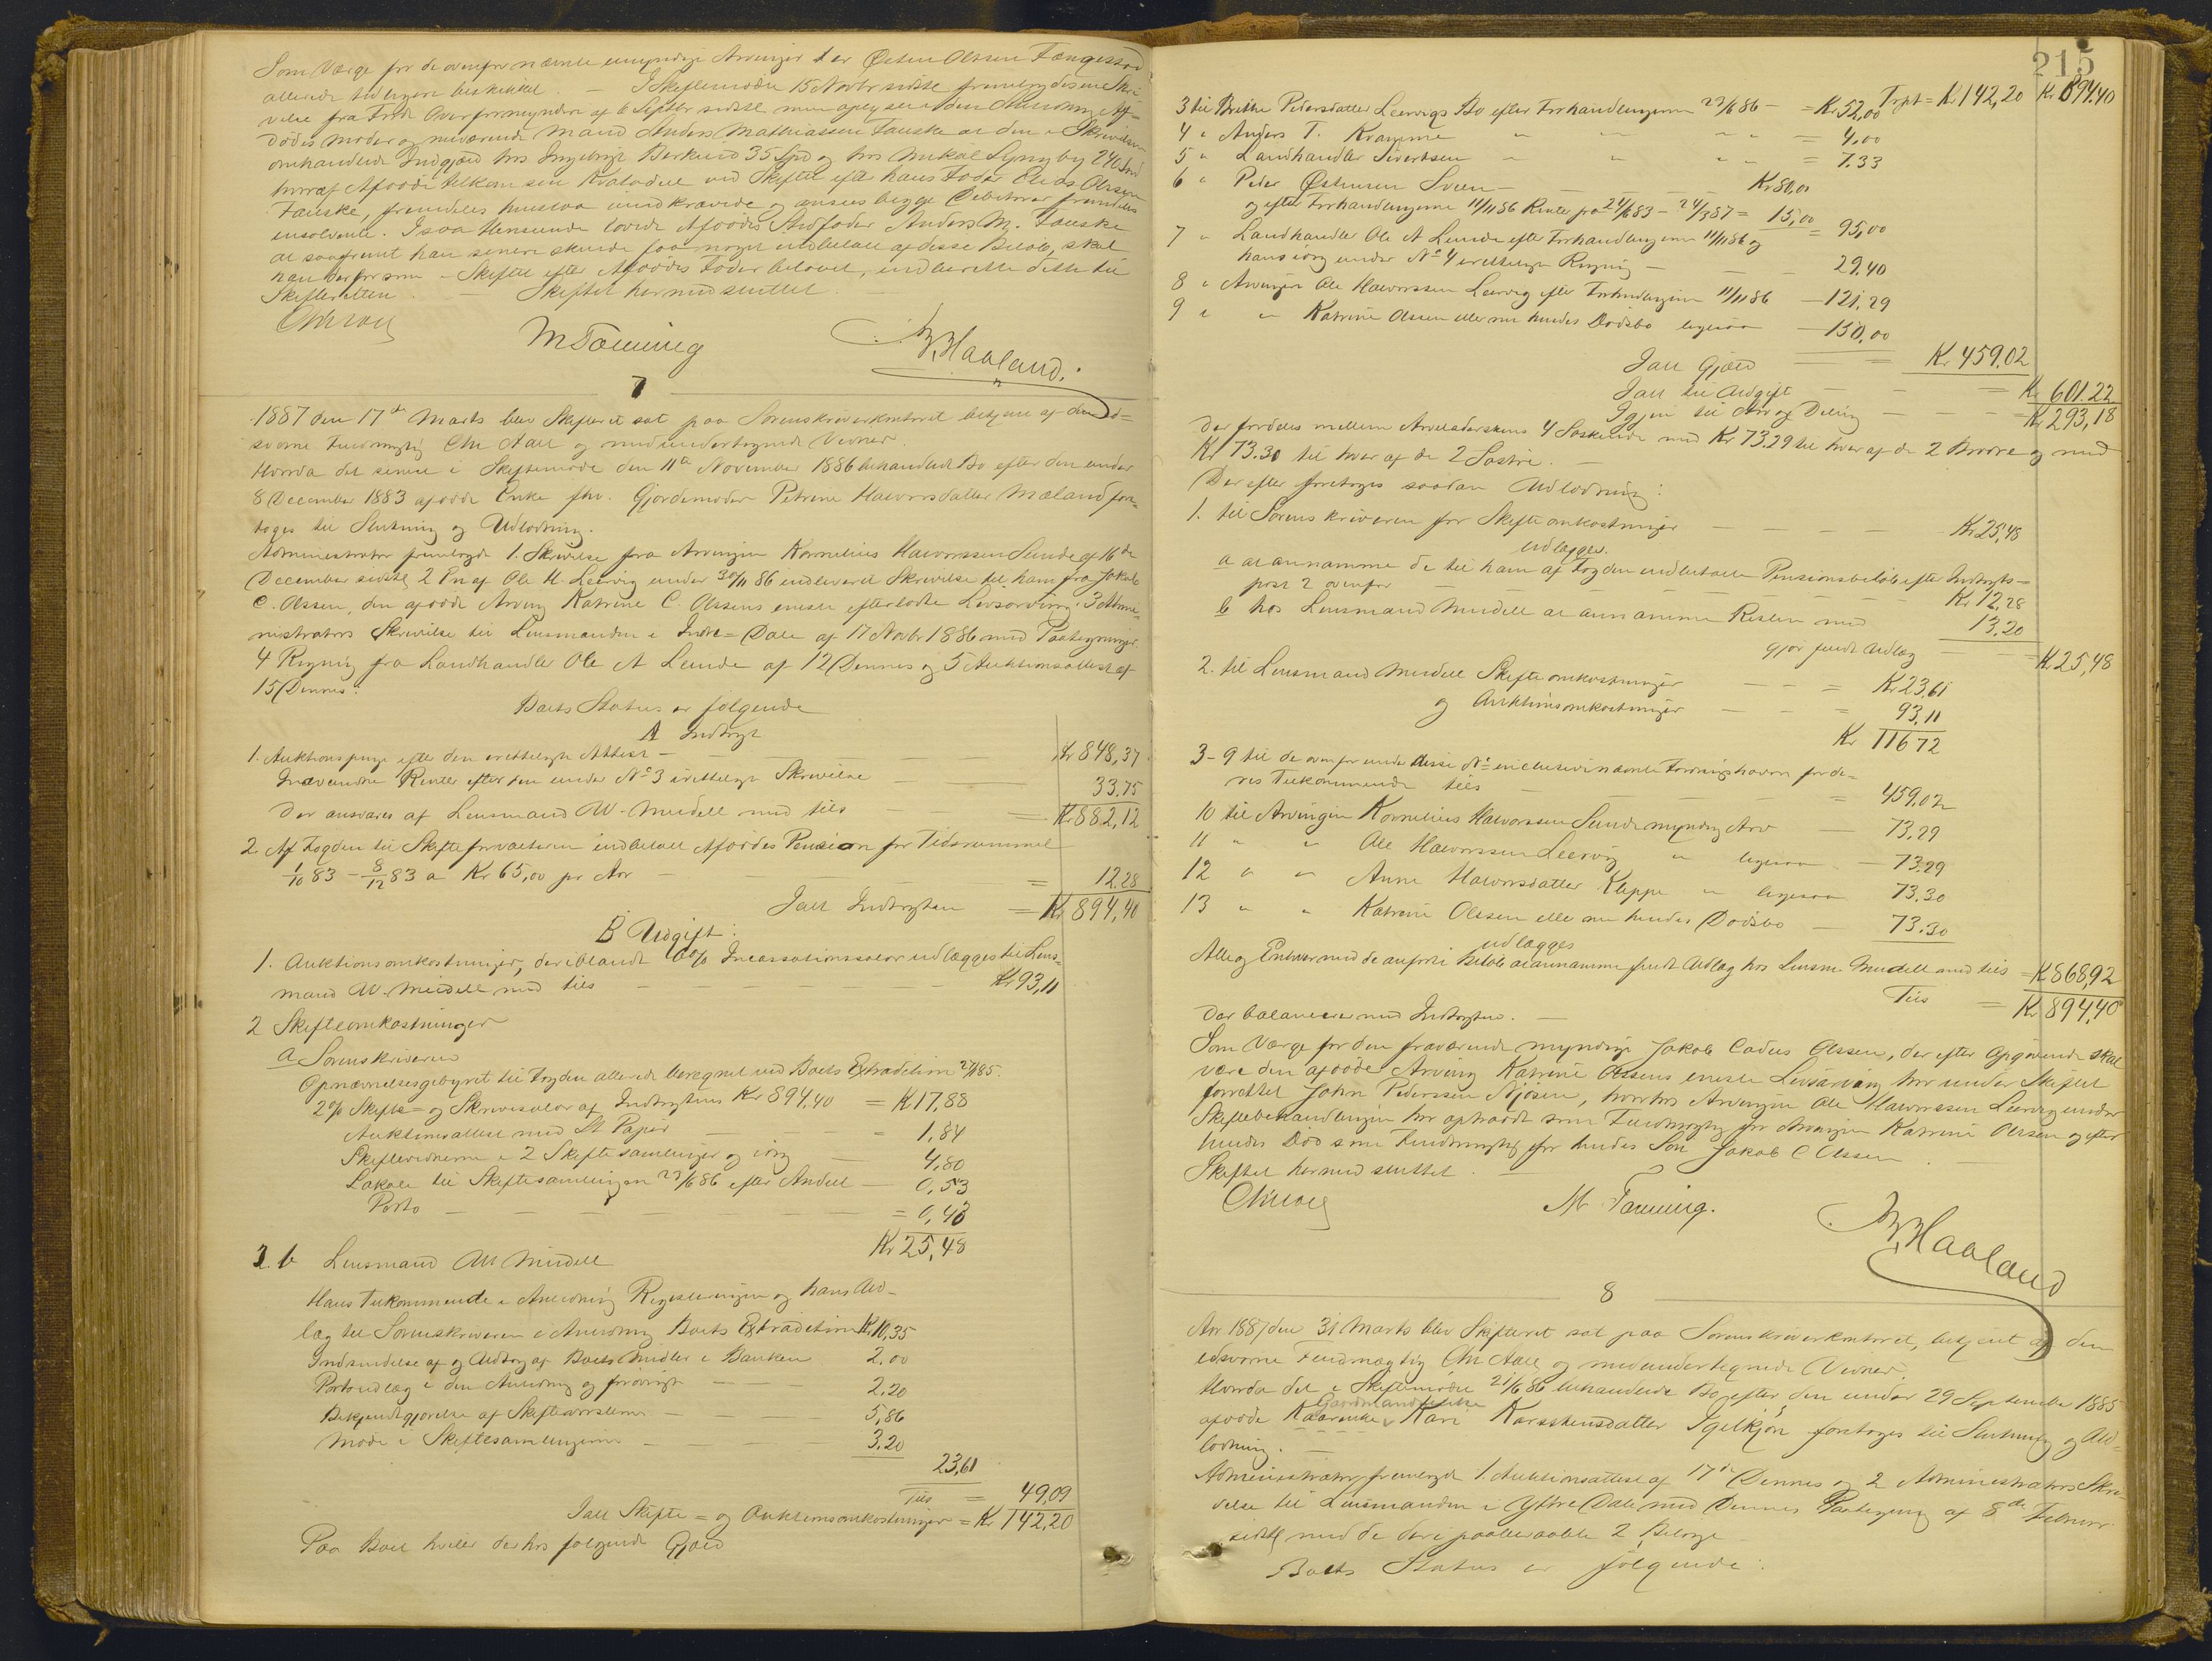 Som Værge for de ovenfor nævnte umyndige Arvinger er Østen Olsen Fængestad
allerede tidligere beskikket. – I Skiftemøde 15 Novbr sidstl. fremlagdes en Skri-
velse fra Førde Overformynderi af 6 Septbr sidstl. men oplyser i den Anledning Af-
dødes Moder og nuværende Mand Anders Mathiassen Fauske at den i Skrivelsen
omhandlede Indgjæld hos Ingebrigt Berkeid 35 Spd og hos Mikal Lyngby 240
hvoraf Afdøde tilkom sin Kvotadeel ved Skiftet efter hans Fader Elias Olsen
Fauske, fremdeles henstaa uindkrævede og ansees begge Debitorer fremdeles
insolvente. I saa Henseende lovede Afdødes Stedfader Anders M. Fauske
at saafremt han senere skulde faa noget indbetalt af disse Beløb, skal
han derfor som i Skiftet efter Afdødes Fader belovet, indberette dette til
Skifteretten. – Skiftet hermed sluttet.
Chr Aall
M Tønning
B. Haaland.
7
1887 den 17de Marts blev Skifteret sat paa Sorenskriverkontoret betjent af den ed=
svorne Fuldmægtig Chr Aall og medundertegnede Vidner
Hvorda det senest i Skiftemøde den 11te November 1886 behandlede Bo efter den under
8 December 1883 afdøde Enke fhv. Gjordemoder Petrine Halvorsdatter Mæland fore=
toges til Slutning og Udlodning.
Administrator fremlagde 1. Skrivelse fra Arvingen Kornelius Halvorssen Sunde af 16de
December sidstl, 2 En af Ole H. Leervig under 30/11 86 indleveret Skrivelse til ham fra Jakob
C. Olssen, den afdøde Arving Katrine C. Olssens eneste efterladte Livsarving, 3 Admi-
nistrators Skrivelse til Lensmanden i Indre=Dale af 17 Novbr 1886 med Paategninger.
4 Regning fra Landhandler Ole A Lunde af 12 Dennes og 5 Auktionsattest af
15 Dennes.
Boets Status er følgende
A Indtægt
1. Auktionspenge efter den irettelagte Attest – Kr 848,37
Indvundne Renter efter den under No 3 irettelagte Skrivelse 33.75
Der ansvares af Lensmand W. Meidell med tils = Kr 882,12
2. Af Fogden til Skifteforvalteren indbetalt Afdødes Pension for Tidsrummet
1/10 83 – 8/12 83 a Kr 65,00 pr Aar = 12.28
Ialt Indtægten = Kr 894,40
B Udgift:
1. Auktionsomkostninger, deriblandt 6% Incassationssalær udlægges til Lens=
mand W. Meidell med tils Kr 93,11
2 Skifteomkostninger
a Sorenskriveren
Opnævnelsesgebyret til Fogden allerede beregnet ved Boets Extradition 27/1 85.
2% Skifte= og Skriversalær af Indtægtens Kr 894,40 = Kr 17,88
Auktionsattest med St Papir = 1,84
Skiftevidnerne i 2 Skiftesamlinger og iøvrig 4,80
Lokale til Skiftesamlingen 23/6 86 efter Andeel – 0,53
Porto = 0,43
Kr 25,48
2. b Lensmand W Meidell
Hans Tilkommende i Anledning Registreringen og hans Ud-
læg til Sorenskriveren i Anledning Boets Extradition Kr 10,35
Indsendelse af og Udtog af Boets Midler i Banken 2.00
Portoudlæg i den Anledning og forøvrigt 2.20
Bekjendtgjørelse af Skifteavarslerne 5,86
Møde i Skiftesamlingerne 3.20
23,61
Tils = 49,09
Ialt Skifte= og Auktionsomkostninger = Kr 142,20
Paa Boet hviler derhos følgende Gjæld
215
Trpt = Kr 142,20 Kr 894.40
3 til Brithe Pedersdatter Leervigs Bo efter Forhandlingerne 23/6 86 – = Kr 52,00
4 " Anders T. Kramme " " " = 4.00
5 " Landhandler Sivertsen " " " = 7.33
6 " Peder Østensen Sveen – Kr 80,00
og efter Forhandlingerne 11/11 86 Rente fra 24/6 83 – 24/3 87 = 15,00 = 95,00
7 " Landhandler Ole A Lunde efter Forhandlingerne 11/11 86 og
hans iøvrig under No 4 irettelagte Regning – 29.40
8 " Arvingen Ole Halvorssen Leervig efter Forhandlingerne 11/11 86 – 121.29
9 " " Katrine Olssen eller nu hendes Dødsbo ligesaa – 150,00
Ialt Gjæld = Kr 459.02
Ialt til Udgift = Kr 601.22
Igjen til Arv og Deling = Kr 293,18
Der fordeles mellem Arveladerskens 4 Søskende med Kr 73.29 til hver af de 2 Brødre og med
Kr 73.30 til hver af de 2 Søstre. –
Derefter foretoges saadan Udlodning:
1. til Sorenskriveren for Skifteomkostninger Kr 25,48
udlægges.
a at annamme de til ham af Fogden indbetalte Pensionsbeløb efter Indtægts=
post 2 ovenfor Kr 12,28
b hos Lensmand Meidell at annamme Resten med 13.20
gjør fuldt Udlæg = Kr 25,48
2. til Lensmand Meidell Skifteomkostninger = Kr 23,61
og Auktionsomkostninger = 93,11
Kr 116 72
3-9 til de ovenfor under disse No inclusive nævnte Fordringshavere for de=
res Tilkommende tils = 459.02
10 til Arvingen Kornelius Halvorssen Sunde myndig Arv 73.29
11 " " Ole Halvorssen Leervig " ligesaa – 73.29
12 " " Anne Halvorsdatter Kleppe " ligesaa 73.30
13 " " Katrine Olssen eller nu hendes Dødsbo – 73.30
udlægges
Alle og Enhver med de anførte Beløb at annamme fuldt Udlæg hos Lensm Meidell med tils = Kr 868,92
Tils = Kr 894,40
Der balancerer med Indtægten. –
Som Værge for den fraværende myndige Jakob Cadus Olssen, der efter Opgivende skal
være den afdøde Arving Katrine Olssens eneste Livsarving har under Skiftet
forrettet John Pederssen Njøsen, hvorhos Arvingen Ole Halvorssen Leervig under
Skiftebehandlingen har optraadt som Fuldmægtig for Arvingen Katrine Olssen og efter
hendes Død som Fuldmægtig for hendes Søn Jakob C Olssen
Skiftet hermed sluttet. –
Chr Aall
M. Tønning.
B. Haaland
8
Aar 1887 den 31 Marts blev Skifteret sat paa Sorenskriverkontoret, betjent af den
edsvorne Fuldmægtig Chr Aall og medundertegnede Vidner.
Hvorda det i Skiftemøde 21/6 86 behandlede Bo efter den under 29 September 1885
afdøde Kaarenke Kari Karstensdatter Igelkjøn foretoges til Slutning og Ud=
lodning. –
Administrator fremlagde 1. Auktionsattest af 17de Dennes og 2 Administrators Skri-
velse til Lensmanden i Ytre Dale med Dennes Paategning af 8de Februar
sidstl med de deri paaberaabte 2 Bilage
Boets Status er følgende: